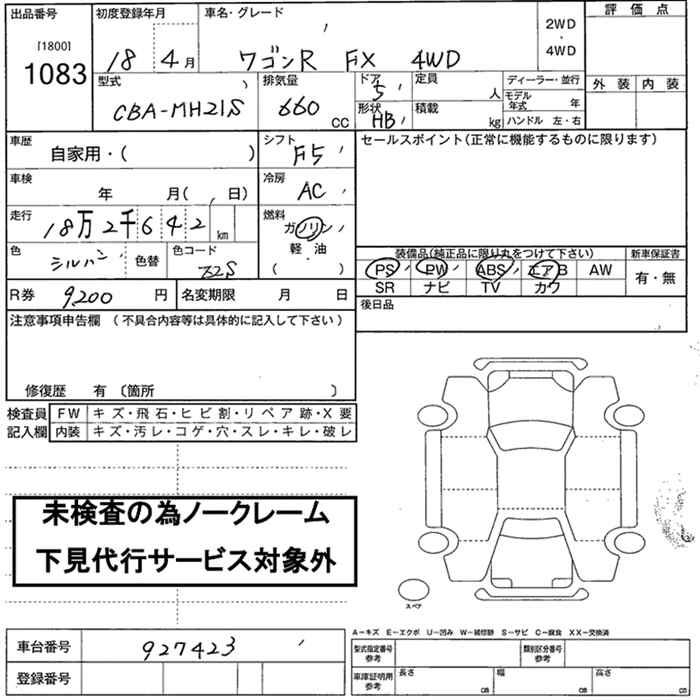 出品番号 初度登録年月 車名・グレード 2WD・4WD 評価点
[1800]
1083 18 4月 ワゴンR FX 4WD
外装 内装
型式 排気量 ドア 形状 定員 積載 ディーラー・並行
CBA-MH21S 660 CC 5 HB 人 kg モデル年式 年
ハンドル 左・右
車歴 シフト セールスポイント(正常に機能するものに限ります)
自家用・( ) F5
車検 冷房
年 月( 日) AC
走行 燃料
18万2千642km ガソリン
軽・油
( ・ )
色 色替 色コード
シルバー Z2S
装備品(純正品に限り丸をつけて下さい) 新車保証書
PS PW ABS エアB AW 有・無
SR ナビ TV カワ
R券 9,200 円 名変期限 月 日
後日品
注意事項申告欄 (不具合内容等は具体的に記入して下さい)
修復歴 有 〔箇所 〕
検査員 FW キズ・飛石・ヒビ割・リペア跡・X要
記入欄 内装 キズ・汚レ・コゲ・穴・スレ・キレ・破レ
未検査の為ノークレーム
下見代行サービス対象外
スペア
A-キズ E-エクボ U-凹み W-補修跡 S-サビ C-腐食 XX-交換済
車台番号 927423
登録番号
型式指定番号 参考 類別区分番号 参考
車庫証明用 参考 長さ cm 幅 cm 高さ cm